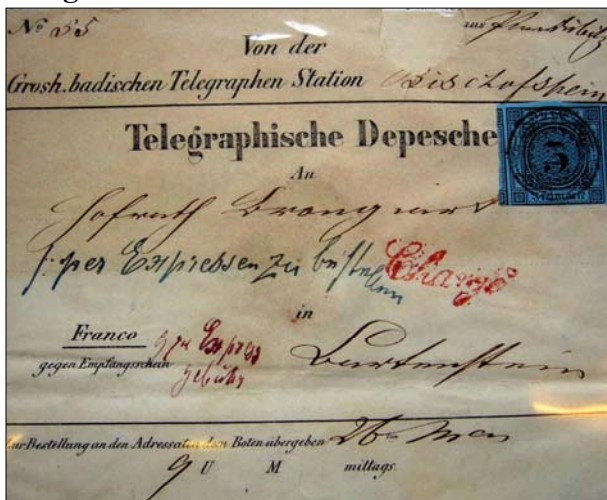 No 55 aus
Von der
Grosh. badischen Telegraphen Station Bischofsheim
Telegraphische Depesche
5
Freimarke
An
Hofrath
per Expressen zu bestellen
Chargé
in
Franco
gegen Empfangsschein
Express
Gebühr
Bartenstein
zur Bestellung an den Adressaten dem Boten übergeben 26
9 U M mittags.